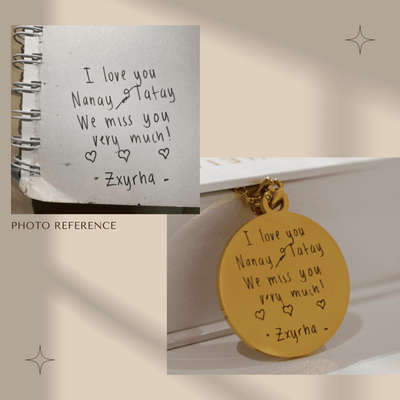 I love you
Nanay & Tatay
We miss you
very much!
- Zxyrha -
PHOTO REFERENCE
I love you
Nanay & Tatay
We miss you
very much!
- Zxyrha -